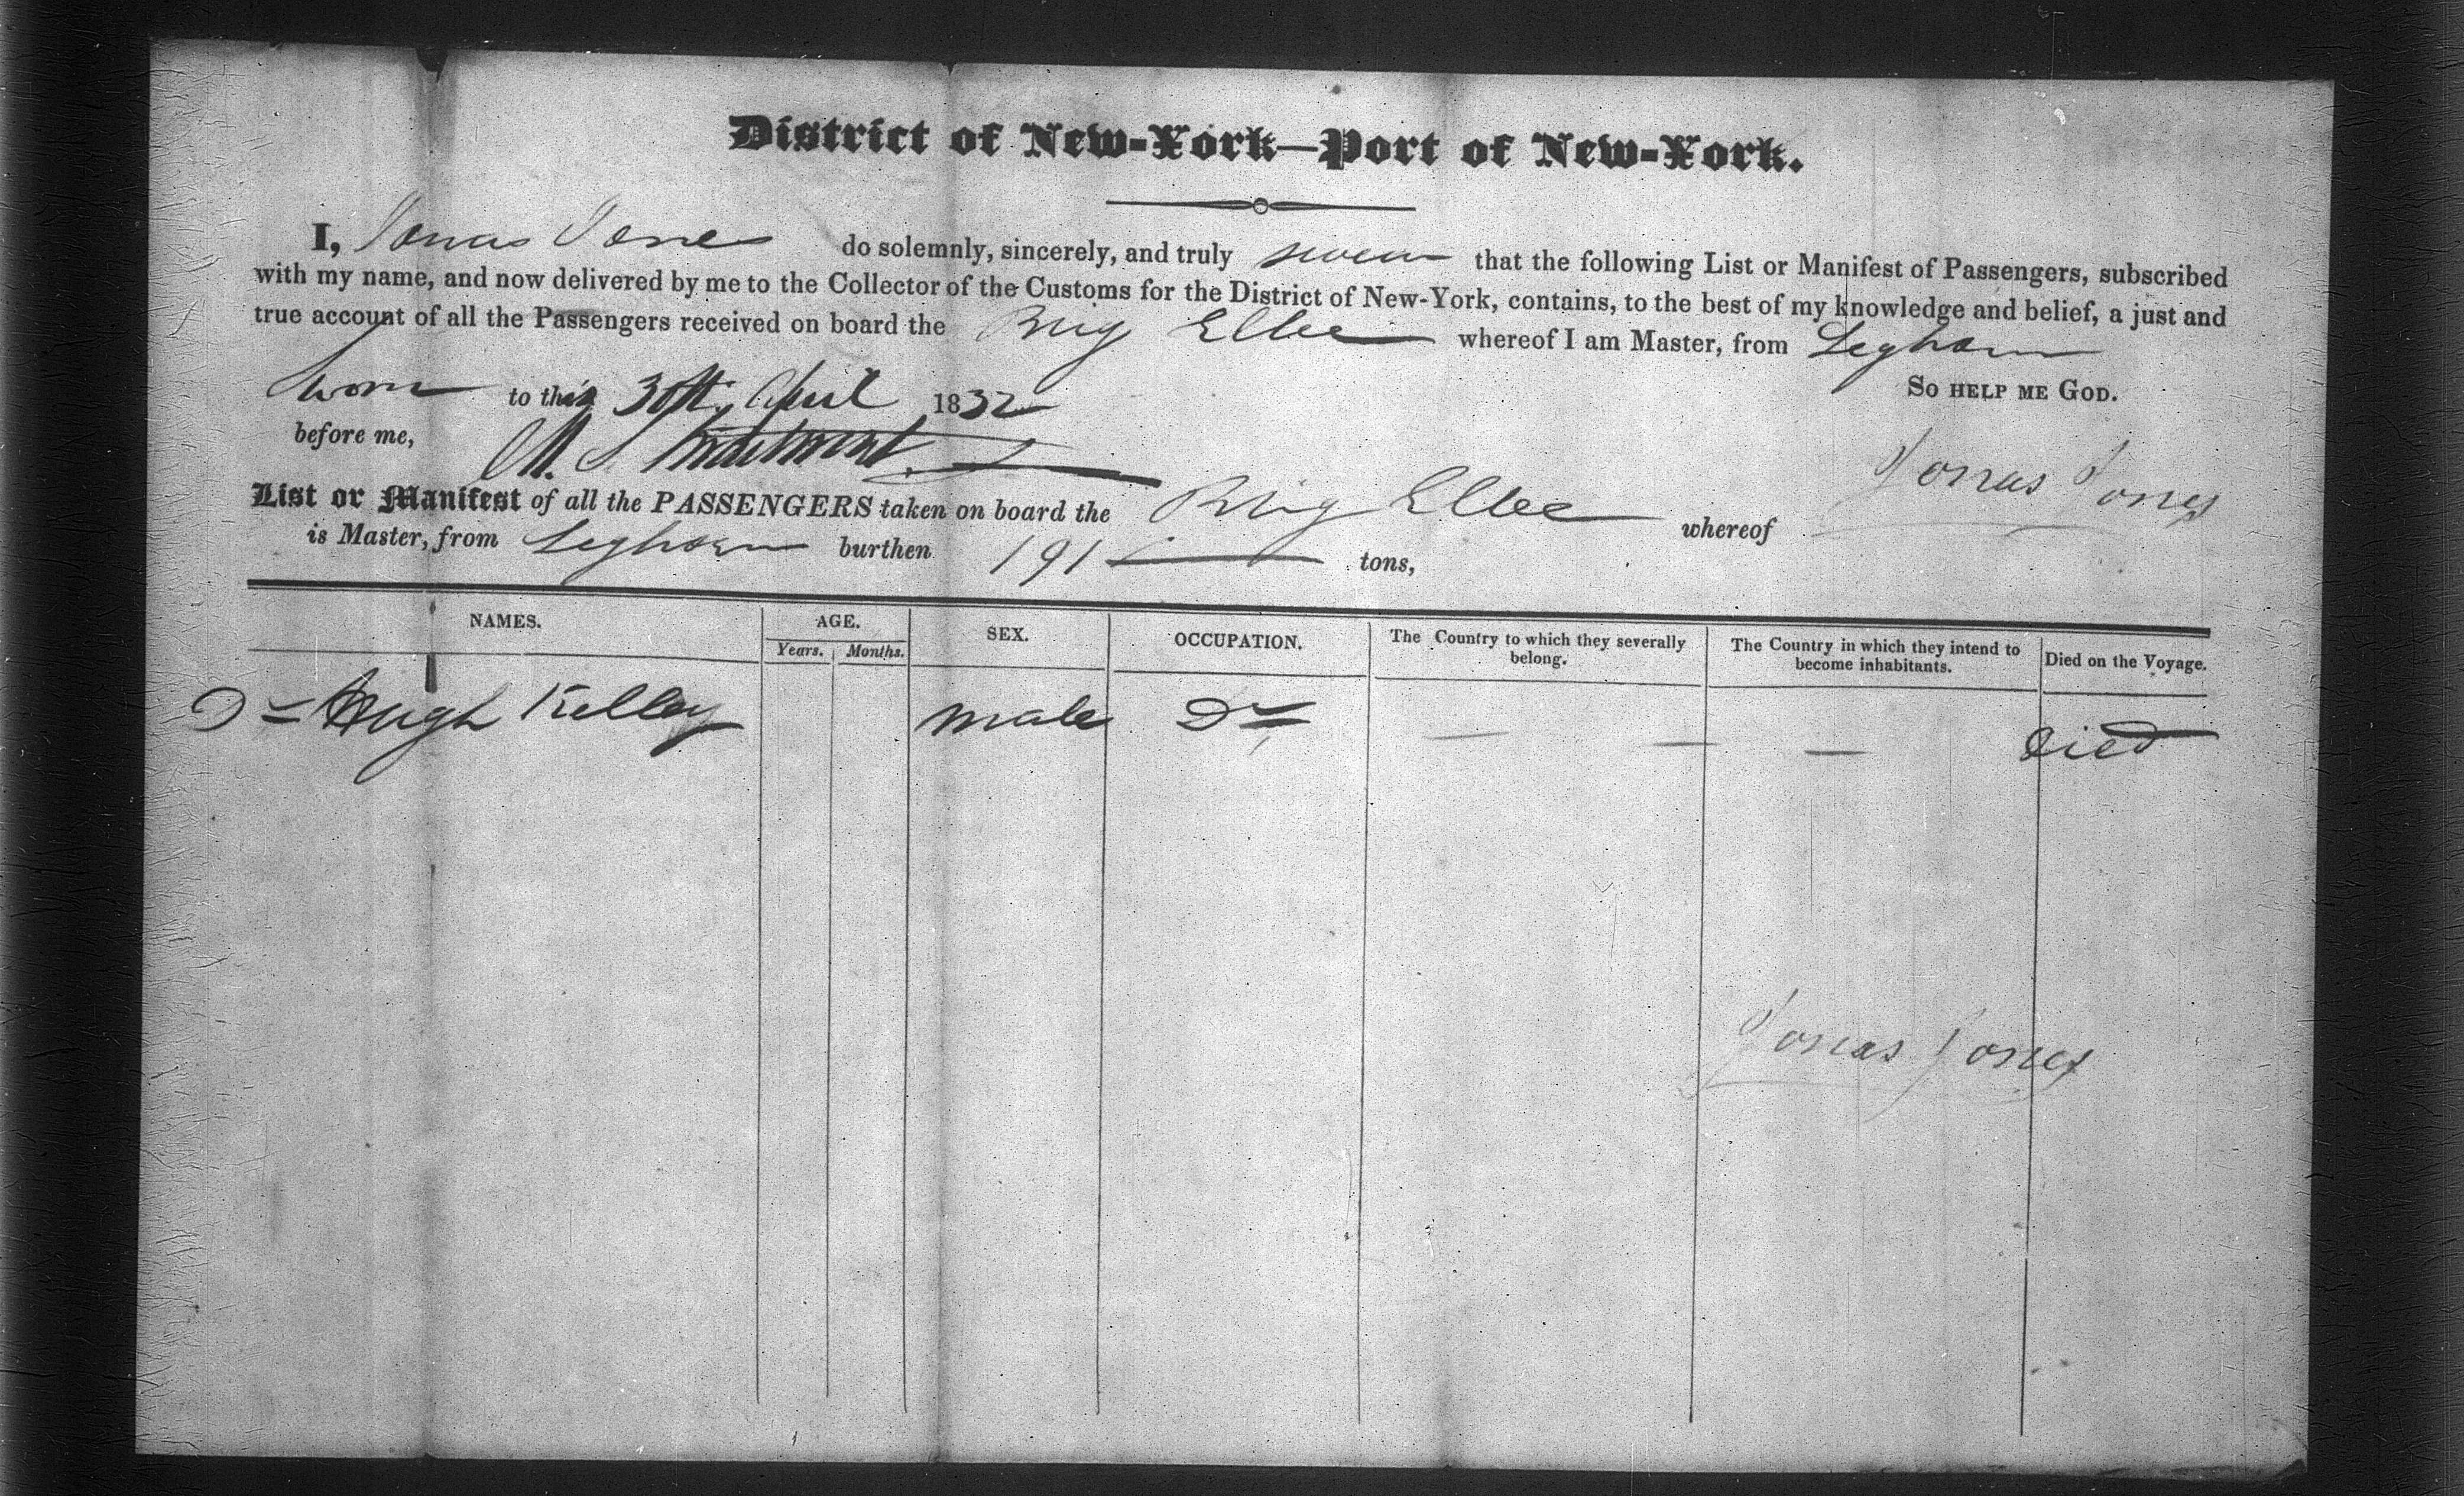 District of New-York—Port of New-York.
I, Jonas Jones do solemnly, sincerely, and truly swear that the following List or Manifest of Passengers, subscribed
with my name, and now delivered by me to the Collector of the Customs for the District of New-York, contains, to the best of my knowledge and belief, a just and
true account of all the Passengers received on board the Brig Elbe whereof I am Master, from Leghorn
So help me God.
Sworn to this 30th April 1832
before me,
Jonas Jones
List or Manifest of all the PASSENGERS taken on board the Brig Elbe whereof
is Master, from Leghorn burthen 191 tons,
NAMES. AGE. SEX. OCCUPATION. The Country to which they severally belong. The Country in which they intend to become inhabitants. Died on the Voyage.
Years. Months.
Dr Hugh Kelley male Dr — — — Died
Jonas Jones